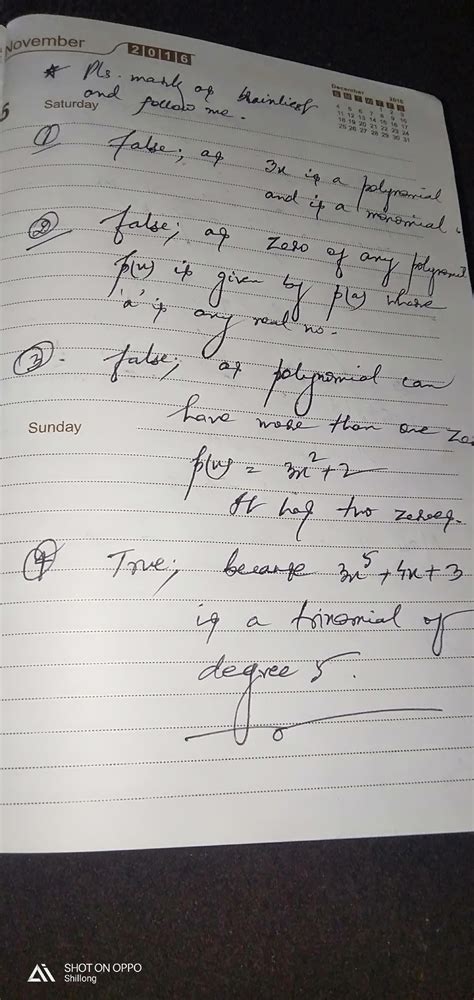 November
2016
* Pls. mark as brainliest
and follow me.
December 2016
S M T W T F S
1 2 3
4 5 6 7 8 9 10
11 12 13 14 15 16 17
18 19 20 21 22 23 24
25 26 27 28 29 30 31
5
Saturday
① false; as 3x is a polynomial
and is a monomial.
② false; as zero of any polynomi
p(x) is given by p(a) where
'a' is any real no.
③. false; as polynomial can
have more than one ze
Sunday
p(x) = 3x²+2
It has two zeroes.
④ True; because 3x⁵+4x+3
is a trinomial of
degree 5.
SHOT ON OPPO
Shillong